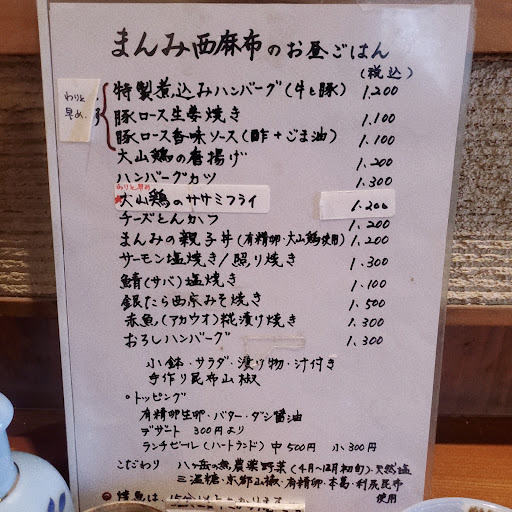 まんみ西麻布のお昼ごはん
(税込)
わりと
早め、
特製煮込みハンバーグ(牛と豚) 1,200
豚ロース生姜焼き 1,100
豚ロース香味ソース(酢+ごま油) 1,100
大山鶏の唐揚げ 1,200
ハンバーグカツ 1,300
わりと早め
大山鶏のササミフライ 1,200
チーズとんかつ 1,200
まんみの親子丼(有精卵・大山鶏使用) 1,200
サーモン塩焼き/照り焼き 1,300
鯖(サバ)塩焼き 1,100
銀だら西京みそ焼き 1,500
赤魚(アカウオ)糀漬け焼き 1,300
おろしハンバーグ 1,300
小鉢・サラダ・漬り物・汁付き
手作り昆布山椒
○トッピング
有精卵生卵・バター・ダシ醤油
デザート 300円より
ランチビール(ハートランド) 中500円 小300円
こだわり 八ヶ岳の無農薬野菜(4月~12月初旬)・天然塩
三温糖・京都山椒・有精卵・本葛・利尻昆布
使用
焼魚は、